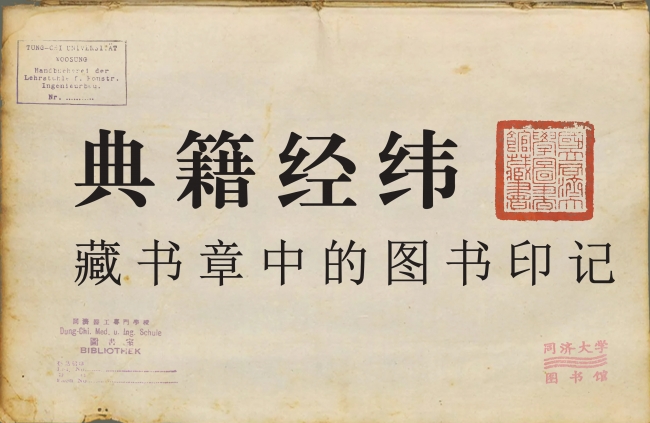 TUNG-CHI UNIVERSITÄT
WOOSUNG
Handbücherei der
Lehrstuhls f. Konstr.
Ingenieurbau.
Nr. ..........
典籍经纬
國立同濟大學圖書館藏書
藏书章中的图书印记
同濟醫工專門學校
Dung-Chi. Med. u. Ing. Schule
圖書室
BIBLIOTHEK
同济大学
图书馆